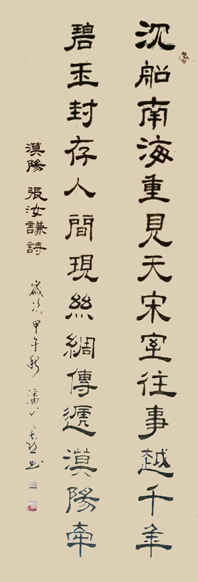 沉船南海重見天宋室往事越千年
碧玉封存人間現絲綢傳遞漢陽牽
漢陽 張汝謙詩
歲次甲午秋